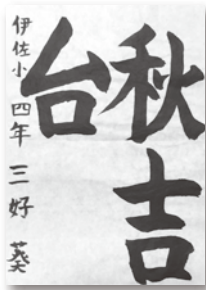 秋吉
台
伊佐小 四年 三好 葵